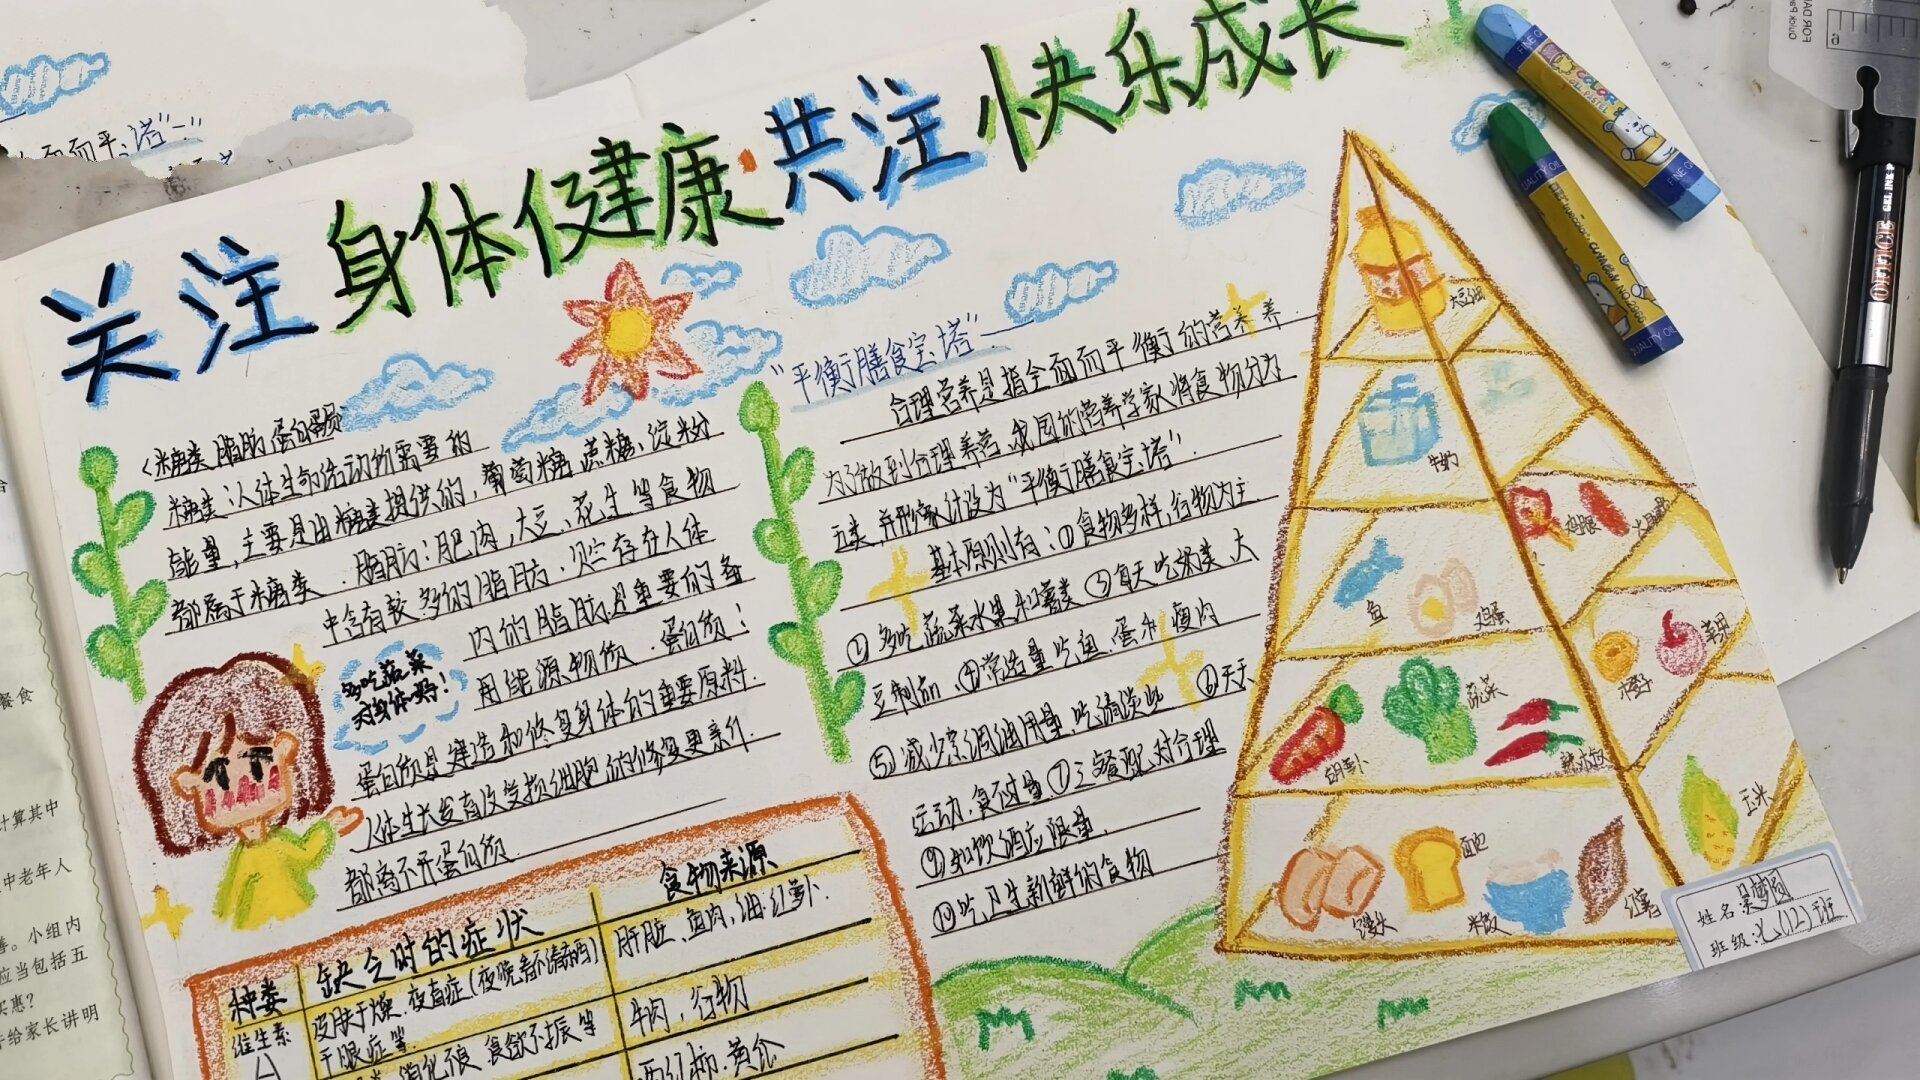 关注身体健康·共注快乐成长
<糖类 脂肪 蛋白质
糖类:人体生命活动所需要的
能量,主要是由糖类提供的,葡萄糖、蔗糖、淀粉
都属于糖类.脂肪:肥肉,大豆、花生等食物
中含有较多的脂肪,贮存在人体
内的脂肪是重要的备
用能源物质.蛋白质:
蛋白质是建造和修复身体的重要原料.
人体生长发育及受损细胞的修复更新什
都离不开蛋白质.
多吃蔬菜
对身体好!
种类
缺乏时的症状
食物来源
维生素
A
皮肤干燥.夜盲症(夜晚看不清东西)
干眼症等
肝脏、鱼肉,油.红萝卜.
消化不良、食欲不振等
牛肉,谷物
西红柿.黄瓜
"平衡膳食宝塔"—
合理营养是指全面而平衡的营养养.
为了做到合理养营.我国的营养学家将食物分为
五类,并形象计设为"平衡膳食宝塔".
基本原则有:①食物多样,谷物为主
②多吃蔬菜水果和薯类 ③每天吃奶类 大
豆制品.④常适量吃鱼、蛋和瘦肉
⑤减少烹调油用量,吃清淡些 ⑥天天
运动,食不过量.⑦三餐配对合理
⑨如饮酒应限量.
⑩吃卫生新鲜的食物
大豆油
牛奶
鸡腿
鱼
鸡蛋
橙子
苹果
胡萝卜
蔬菜
玉米
馒头
面包
米饭
红薯
姓名:吴梦圆
班级:七(12)班
而而平
塔"—"
餐食
计算其中
中老年人
善。小组内
应当包括五
实惠?
并给家长讲明
FINE QUALITY OIL
GEL INK